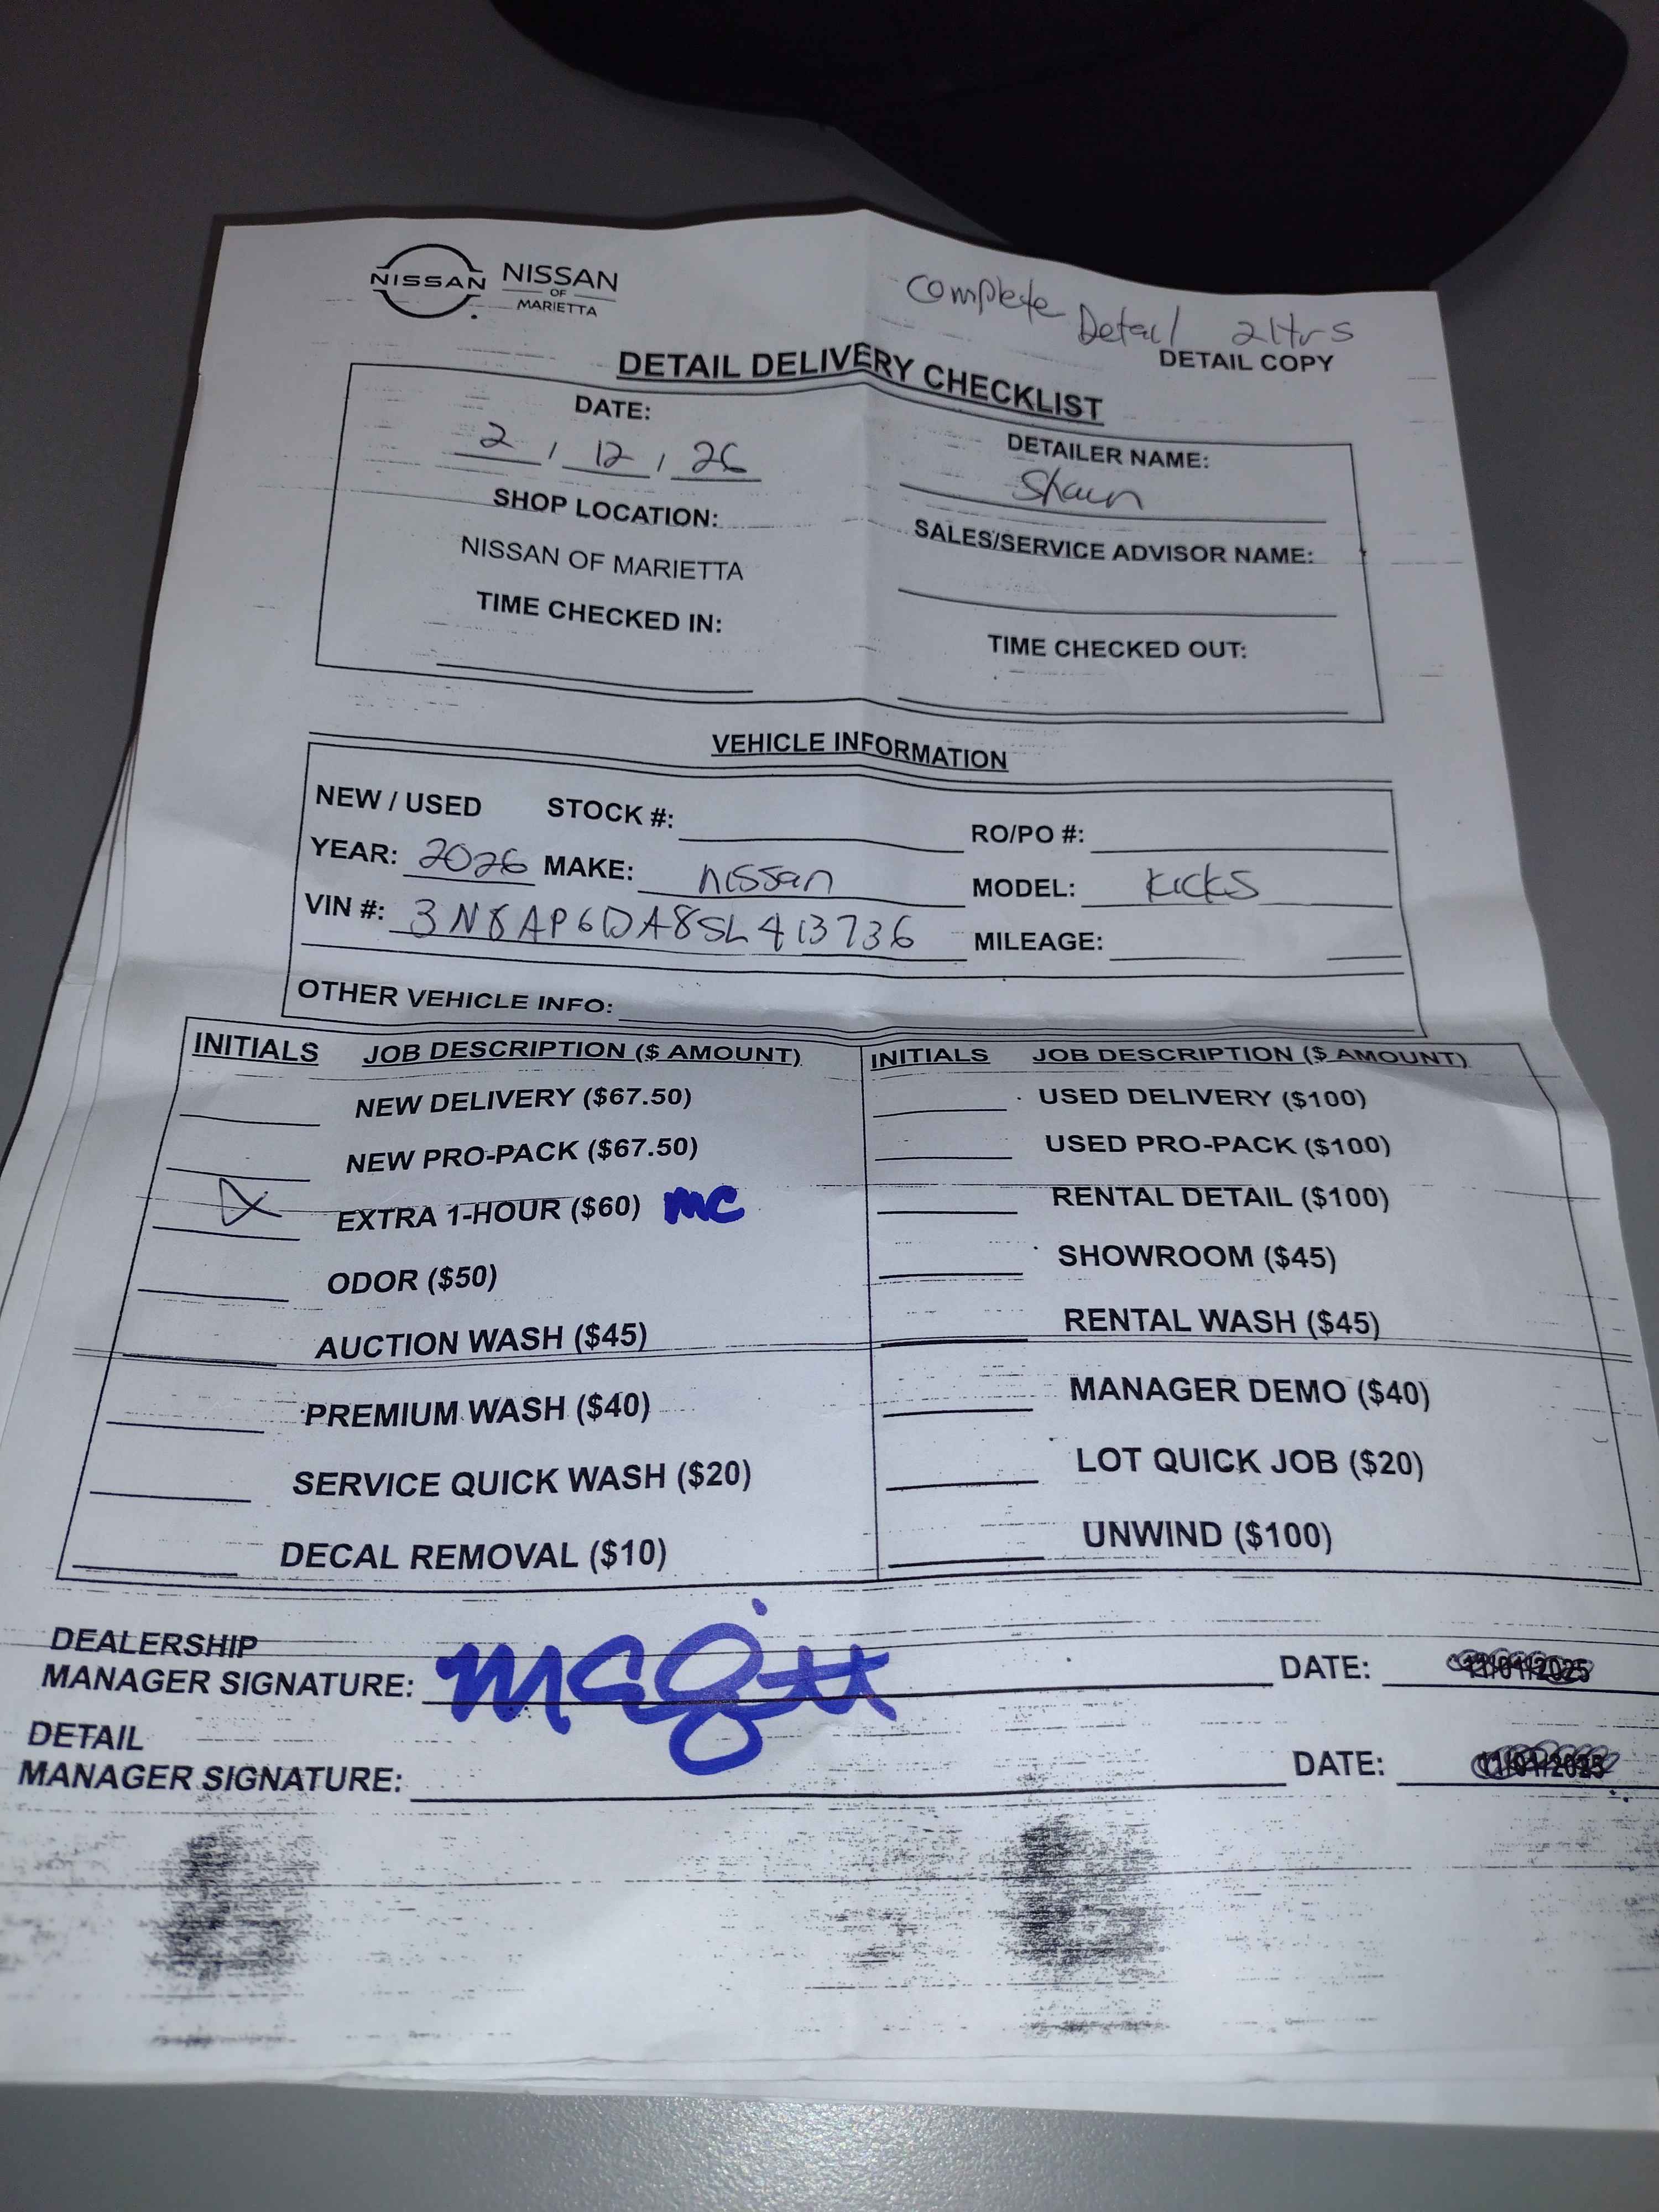 NISSAN NISSAN
OF
MARIETTA
Complete Detail 2Hrs
DETAIL COPY
DETAIL DELIVERY CHECKLIST
DATE:
2 / 12 / 26
DETAILER NAME:
Shaun
SHOP LOCATION:
NISSAN OF MARIETTA
SALES/SERVICE ADVISOR NAME:
TIME CHECKED IN:
TIME CHECKED OUT:
VEHICLE INFORMATION
NEW / USED STOCK #: RO/PO #:
YEAR: 2026 MAKE: nissan MODEL: Kicks
VIN #: 3N8AP6DA8SL413736 MILEAGE:
OTHER VEHICLE INFO:
INITIALS JOB DESCRIPTION ($ AMOUNT) INITIALS JOB DESCRIPTION ($ AMOUNT)
NEW DELIVERY ($67.50) USED DELIVERY ($100)
NEW PRO-PACK ($67.50) USED PRO-PACK ($100)
EXTRA 1-HOUR ($60) MC RENTAL DETAIL ($100)
ODOR ($50) SHOWROOM ($45)
AUCTION WASH ($45) RENTAL WASH ($45)
PREMIUM WASH ($40) MANAGER DEMO ($40)
SERVICE QUICK WASH ($20) LOT QUICK JOB ($20)
DECAL REMOVAL ($10) UNWIND ($100)
DEALERSHIP
MANAGER SIGNATURE: DATE: 11/01/2025
DETAIL
MANAGER SIGNATURE: DATE: 11/01/2025